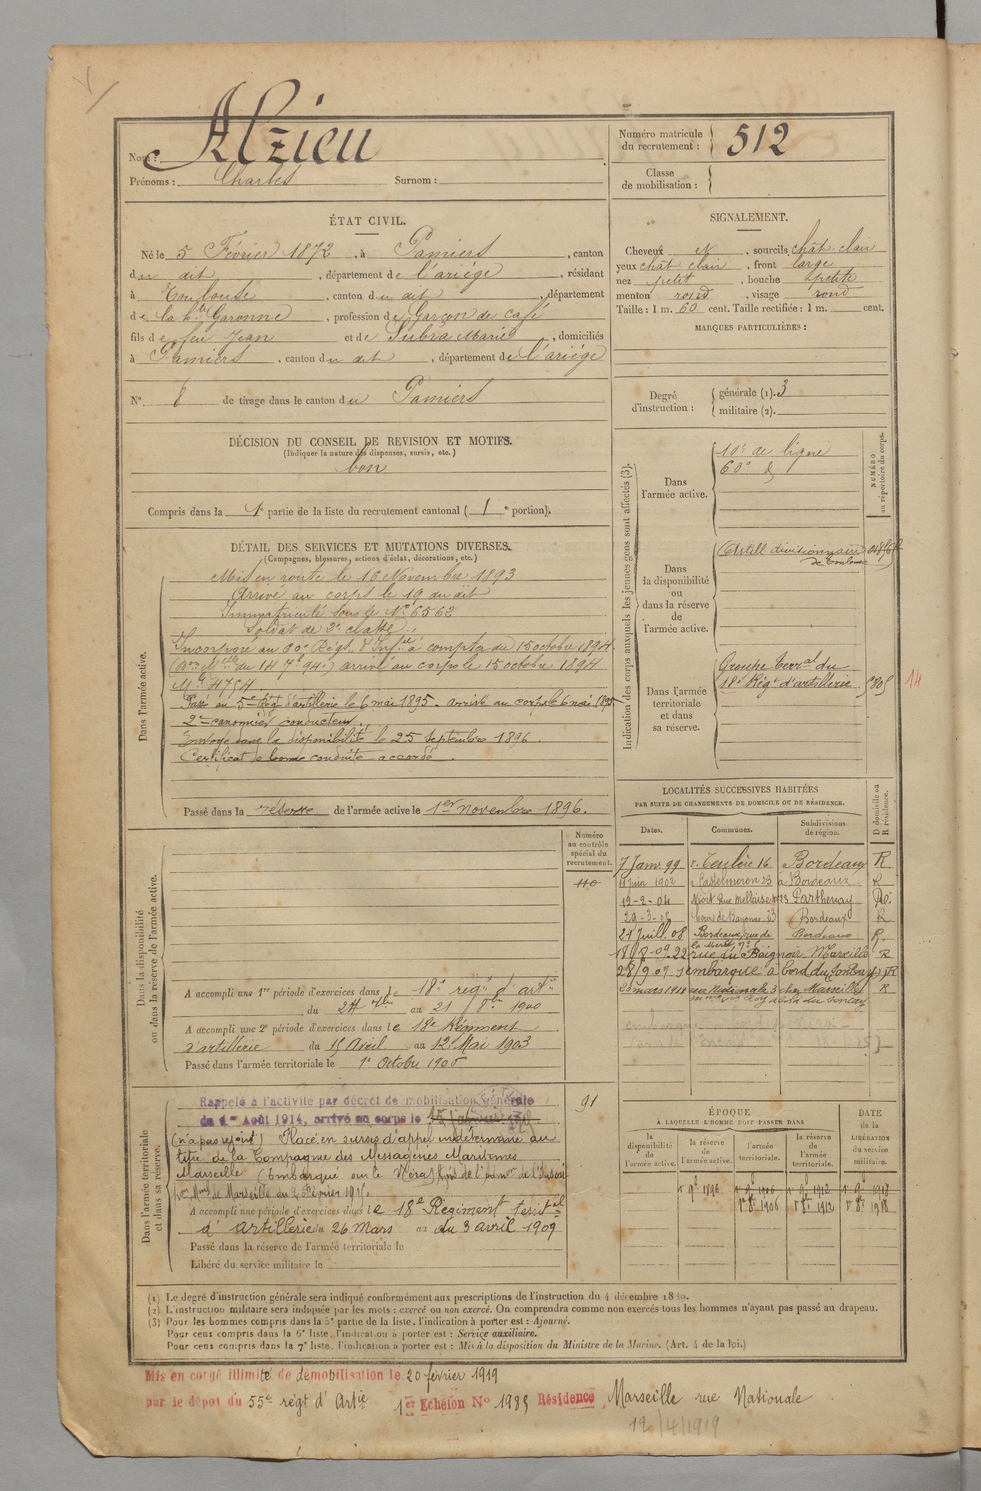 Nom : Alzieu
Prénoms : Charles Surnom :
Numéro matricule du recrutement : 512
Classe de mobilisation :
ÉTAT CIVIL.
Né le 5 Février 1872, à Pamiers, canton
du dit, département de l'ariège, résidant
à Toulouse, canton du dit, département
de la hte Garonne, profession de Garçon de café
fils de feu Jean et de Subra Marie, domiciliés
à Pamiers, canton du dit, département de l'ariège
N° 8 de tirage dans le canton du Pamiers
SIGNALEMENT.
Cheveux et, sourcils chât. clair
yeux chât clair, front large
nez petit, bouche petite
menton rond, visage rond
Taille : 1 m. 60 cent. Taille rectifiée : 1 m. cent.
MARQUES PARTICULIÈRES :
Degré d'instruction : générale (1). 3
militaire (2).
DÉCISION DU CONSEIL DE REVISION ET MOTIFS.
(Indiquer la nature des dispenses, sursis, etc.)
bon
Compris dans la 1e partie de la liste du recrutement cantonal ( 1 e portion).
DÉTAIL DES SERVICES ET MUTATIONS DIVERSES.
(Campagnes, blessures, actions d'éclat, décorations, etc.)
Dans l'armée active.
Mis en route le 16 Novembre 1893
Arrivé au corps le 19 du dit
Immatriculé sous le N° 6562
Soldat de 2e classe
Incorporé au 60e Régt d'Infie à compter du 15 octobre 1894
arrivé au corps le 15 octobre 1894
Passé au 5e Régt d'artillerie le 6 mai 1895. arrivé au corps le 6 mai 1895
2e canonnier conducteur
Envoyé dans la disponibilité le 25 septembre 1896.
Certificat de bonne conduite accordé.
Passé dans la réserve de l'armée active le 1er novembre 1896.
Indication des corps auxquels les jeunes gens sont affectés (3).
NUMÉRO au répertoire du corps.
Dans l'armée active.
10e de ligne
60e d
Dans la disponibilité ou dans la réserve de l'armée active.
Artill divisionnaire
de Toulouse
Dans l'armée territoriale et dans sa réserve.
Groupe Terral du
18e Régt d'artillerie
14
LOCALITÉS SUCCESSIVES HABITÉES
PAR SUITE DE CHANGEMENTS DE DOMICILE OU DE RÉSIDENCE.
Dates. Communes. Subdivisions de région. D domicile ou R résidence.
7 Janv. 99 16 Bordeaux R
1902 r. Castelmoron 23 à Bordeaux R
12-2-04 Niort Rue Mellaise Parthenay
29-3-06 Cours de Bayonne 23 Bordeaux R
21 Juill. 08 Bordeaux, rue de Bordeaux R.
18/8-09 22 rue du Baignoir Marseille R
28/9 09 embarqué à bord du R
23 mars 1918 rue Nationale 3 chez Marseille R
Dans la disponibilité ou dans la réserve de l'armée active.
Numéro au contrôle spécial du recrutement.
110
A accompli une 1re période d'exercices dans le 18e régt d'artie
du 24 7bre au 21 8bre 1900
A accompli une 2e période d'exercices dans le 18e Régiment
d'artillerie du 15 Avril au 12 Mai 1903
Passé dans l'armée territoriale le 1er Octobre 1906
Dans l'armée territoriale et dans sa réserve.
Rappelé à l'activité par décret de mobilisation générale
du 1er Août 1914, arrivé au corps le
91
(n'a pas rejoint) Placé en sursis d'appel indéterminé au
titre de la Compagnie des Messageries Maritimes
Marseille
de Marseille du Février
A accompli une période d'exercices dans le 18e Régiment territal
d'artillerie du 26 Mars au du 3 avril 1909
Passé dans la réserve de l'armée territoriale le
Libéré du service militaire le
ÉPOQUE À LAQUELLE L'HOMME DOIT PASSER DANS
la disponibilité de l'armée active. la réserve de l'armée active. l'armée territoriale. la réserve de l'armée territoriale.
DATE DE LA LIBÉRATION du service militaire.
1er 9b 1896 1er 9b 1906 1er 9b 1912 1er 9b 1918
1er 8b 1906 1er 8b 1912 1er 8b 1918
(1) Le degré d'instruction générale sera indiqué conformément aux prescriptions de l'instruction du 4 décembre 1889.
(2) L'instruction militaire sera indiquée par les mots : exercé ou non exercé. On comprendra comme non exercés tous les hommes n'ayant pas passé au drapeau.
(3) Pour les hommes compris dans la 5e partie de la liste, l'indication à porter est : Ajourné.
Pour ceux compris dans la 6e liste, l'indication à porter est : Service auxiliaire.
Pour ceux compris dans la 7e liste, l'indication à porter est : Mis à la disposition du Ministre de la Marine. (Art. 4 de la loi.)
Mis en congé illimité de démobilisation le 20 février 1919
par le dépôt du 55e régt d'Artie 1er Echelon N° 1985 Résidence Marseille rue Nationale
12/4/1919